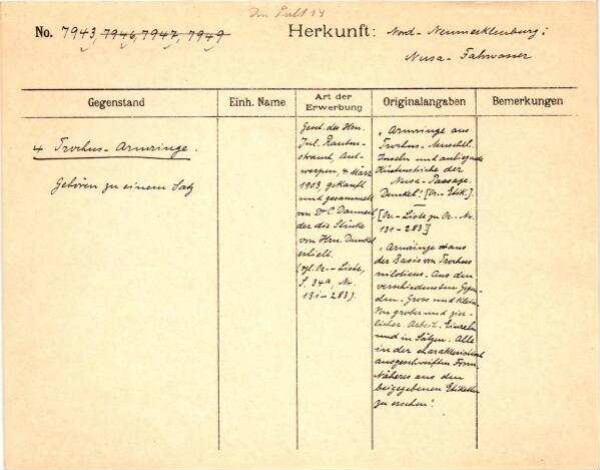 Den Pult 14
No. 7943, 7946, 7947, 7949
Herkunft: Nord-Neumecklenburg:
Nusa-Fahrwasser
Gegenstand
Einh. Name
Art der Erwerbung
Originalangaben
Bemerkungen
4 Trochus-Armringe.
Gehören zu einem Satz
Gesch. des Hrn.
Jul. Rautenstrauch,
Antwerpen, 4 März
1903, gekauft
und gesammelt
von Dr C. Danneil
der die Stücke
von Hrn. Dunkel
erhielt.
(vgl. Or.-Liste,
S. 34a, Nr.
131-283).
"Armringe aus
Trochus. Neuschtl.
Inseln und anliegende
Küstenstriche der
Nusa-Passage.
Dunkel". [Or.-Etik.].
[Or.-Liste zu Or.-Nr.
131-283]
"Armringe aus
der Basis von Trochus
niloticus. Aus den
verschiedensten Gegenden.
Gross und klein.
Von grober und zierlicher
Arbeit. Einzeln
und in Sätzen. Alle
in der charakteristisch
ausgeschweiften Form.
Näheres aus den
beigegebenen Etiketten
zu ersehen".